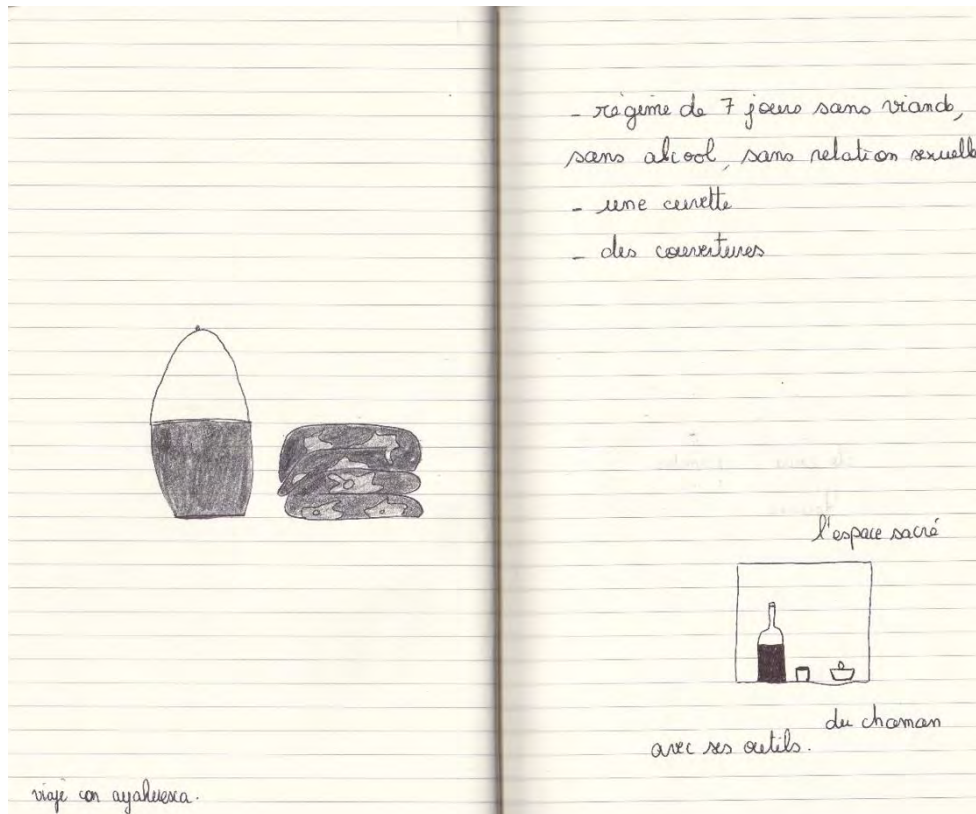 viaje con ayahuesca.
- régime de 7 jours sans viande,
sans alcool, sans relation sexuelle
- une cuvette
- des couvertures
l'espace sacré
du chaman
avec ses outils.